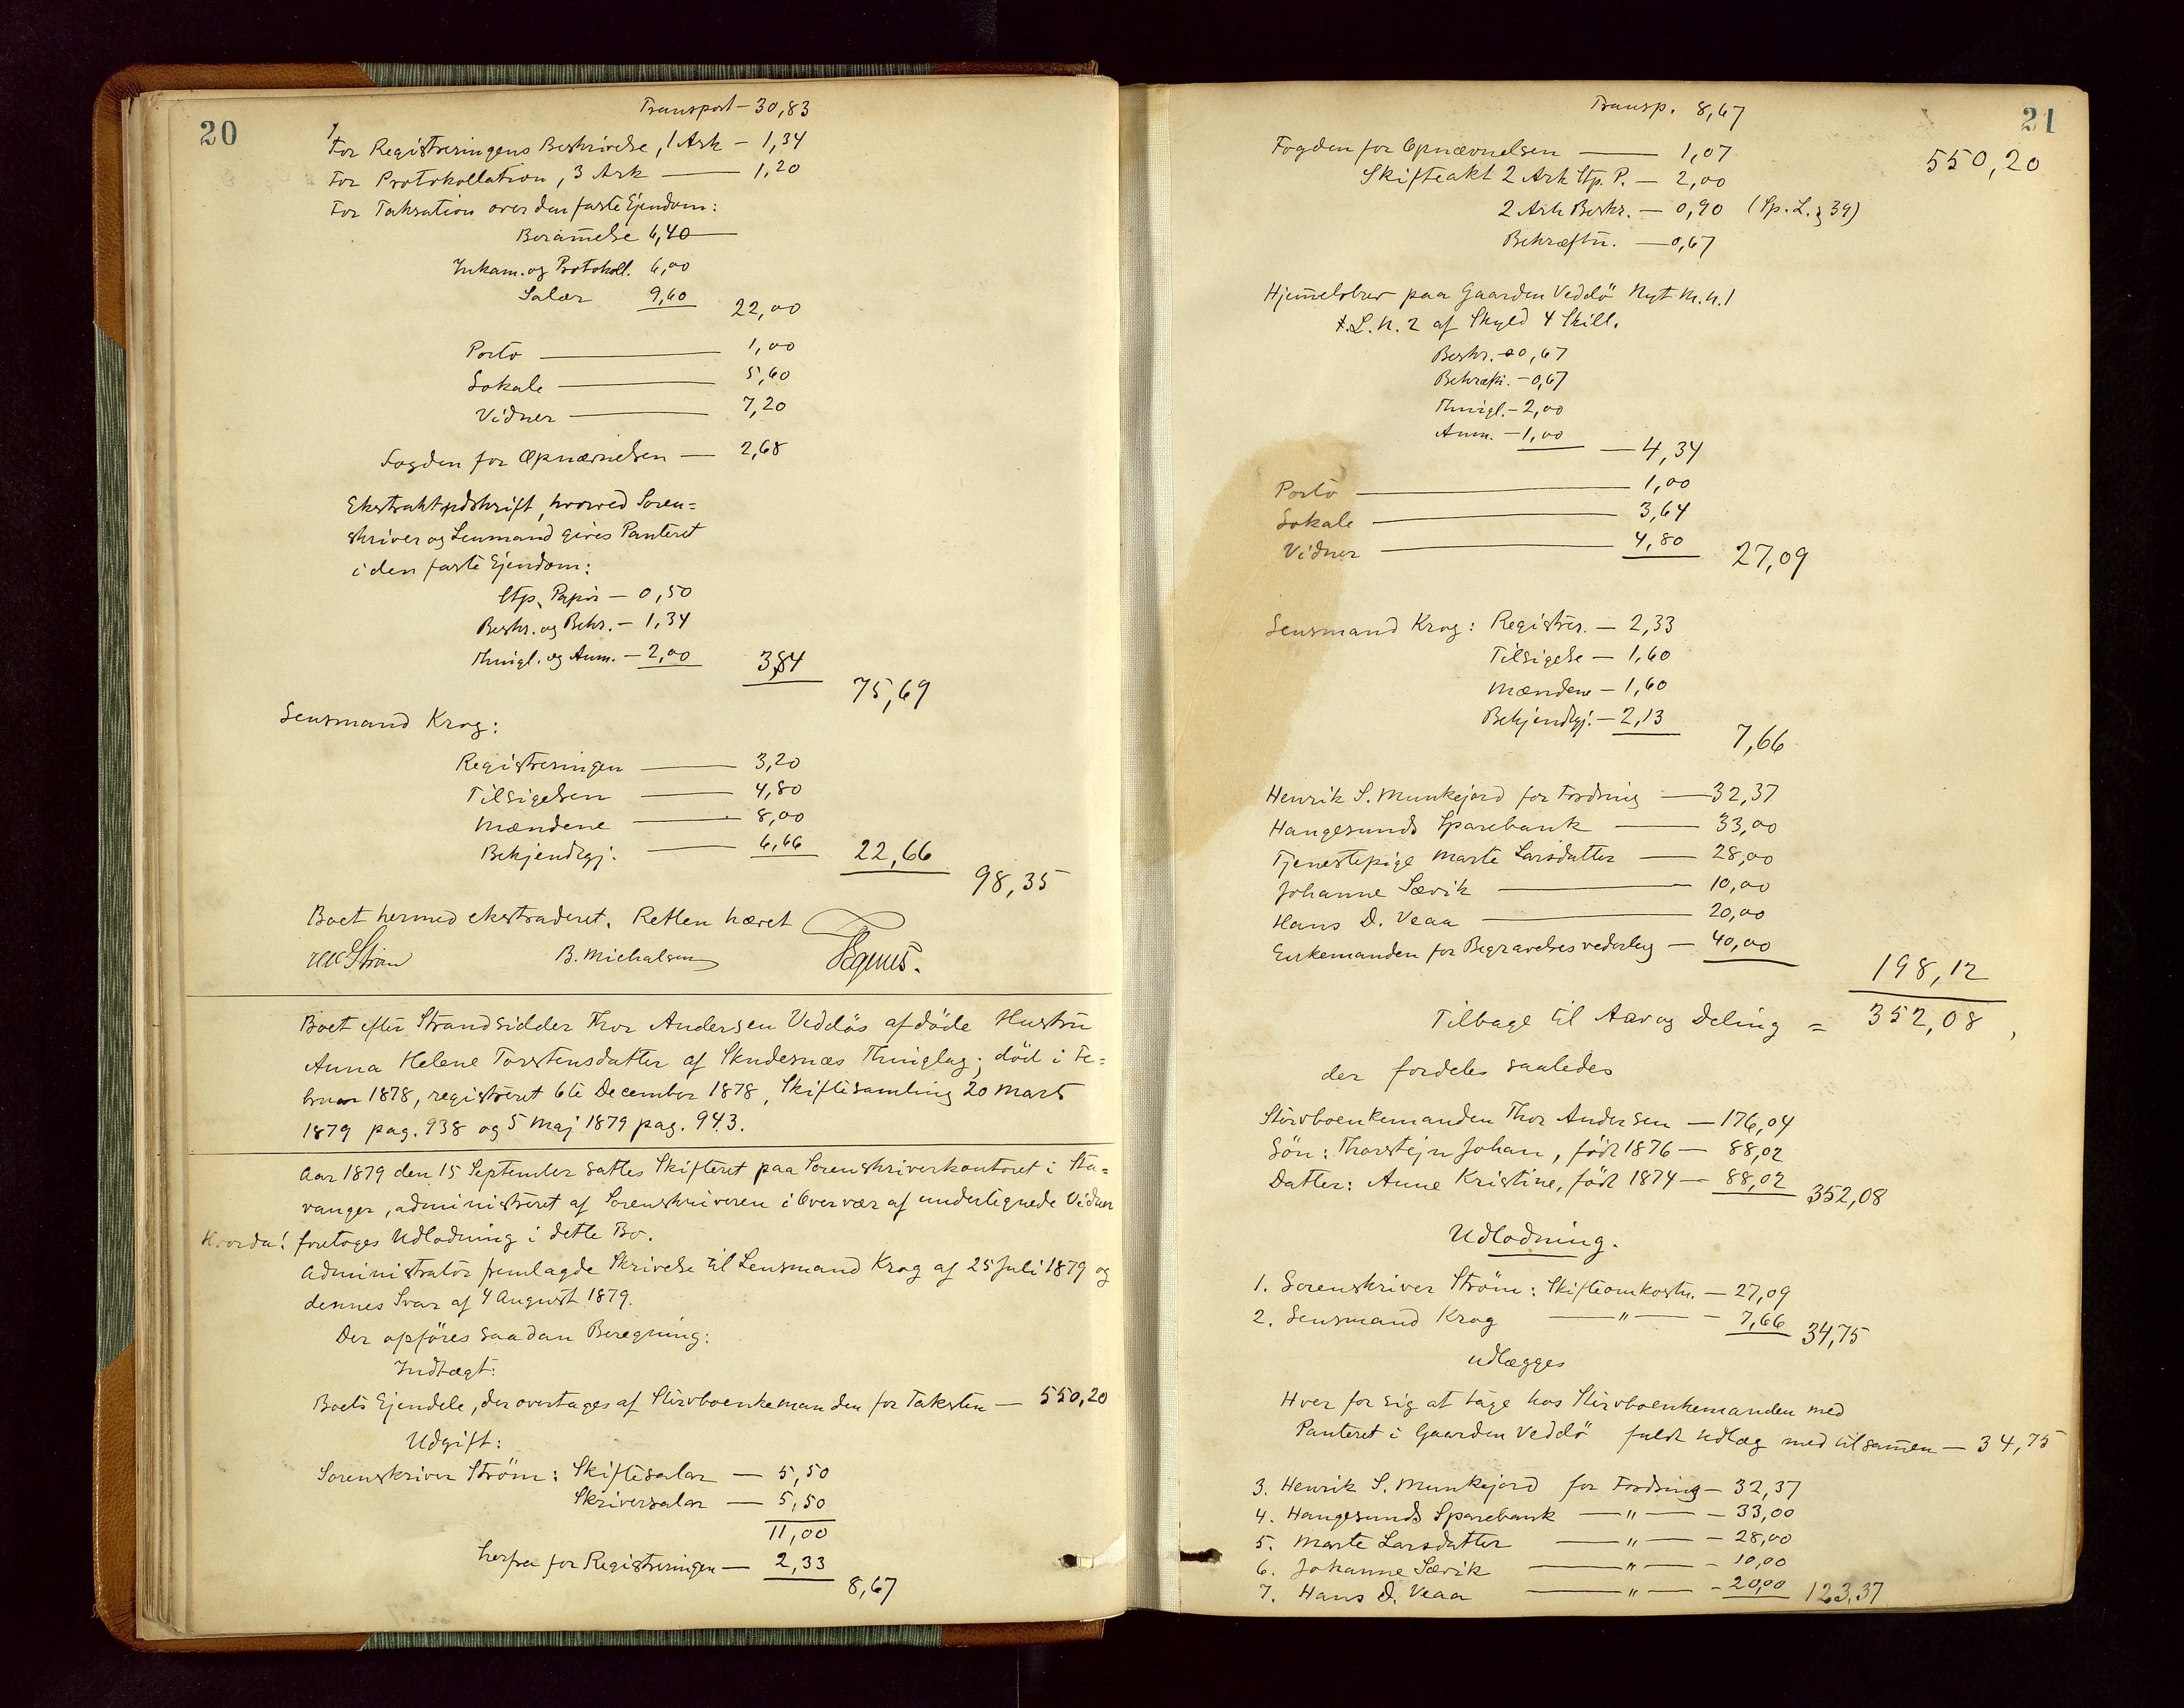 20
Transport — 30,83
For Registreringens Beskrivelse, 1 Ark — 1,34
For Protokollation, 3 Ark — 1,20
For Taksation over den faste Ejendom:
Beramelse 6,40
Inkam. og Protokoll. 6,00
Salær 9,60 22,00
Porto — 1,00
Lokale — 5,60
Vidner — 7,20
Fogden for Opnævnelsen — 2,68
Ekstraktudskrift, hvorved Soren=
skriver og Lensmand gives Panteret
i den faste Ejendom:
Stp. Papir — 0,50
Beskr. og Bekr. — 1,34
Thingl. og Anm. — 2,00 3,84
75,69
Lensmand Krog:
Registreringen — 3,20
Tilsigelsen — 4,80
Mændene — 8,00
Bekjendtgj. — 6,66 22,66
98,35
Boet hermed ekstraderet. Retten hævet
Strøm B. Michalsen
Boet efter Strandsidder Thor Andersen Veddös afdöde Hustru
Anna Helene Torstensdatter af Skudesnæs Thinglag; död i Fe=
bruar 1878, registreret 6te December 1878, Skiftesamling 20 Marts
1879 pag. 938 og 5 Maj 1879 pag. 943.
Aar 1879 den 15 September sattes Skifteret paa Sorenskriverkontoret i Sta=
vanger, administreret af Sorenskriveren i Overvær af undertegnede Vidner
Hvorda! foretoges Udlodning i dette Bo.
Administrator fremlagde Skrivelse til Lensmand Krog af 25 Juli 1879 og
dennes Svar af 4 August 1879.
Der opföres saadan Beregning:
Indtægt:
Boets Ejendele, der overtages af Stervboenkemanden for Taksten — 550,20
Udgift:
Sorenskriver Ström: Skiftesalær — 5,50
Skriversalær — 5,50
11,00
herfra for Registreringen — 2,33
8,67
21
Transp. 8,67
550,20
Fogden for Opnævnelsen — 1,07
Skifteakt 2 Ark Stp. P. — 2,00
2 Ark Beskr. — 0,90 (Sp. L. § 39)
Bekræftn. — 0,67
Hjemmelsbrev paa Gaarden Veddö Nyt M. N. 1
L. N. 2 af Skyld 4 Skill.
Beskr. — 0,67
Bekræft. — 0,67
Thingl. — 2,00
Anm. — 1,00 — 4,34
Porto — 1,00
Lokale — 3,64
Vidner — 4,80 27,09
Lensmand Krog: Registrer. — 2,33
Tilsigelse — 1,60
Mændene — 1,60
Bekjendtgj. — 2,13
7,66
Henrik S. Munkejord for Fordring — 32,37
Haugesunds Sparebank — 33,00
Tjenestepige Marte Larsdatter — 28,00
Johanne Sævik — 10,00
Hans D. Veaa — 20,00
Enkemanden for Begravelsesvederlag — 40,00
198,12
Tilbage til Arv og Deling = 352,08,
der fordeles saaledes
Stervboenkemanden Thor Andersen — 176,04
Sön: Thorstejn Johan, född 1876 — 88,02
Datter: Anne Kristine, född 1874 — 88,02 352,08
Udlodning.
1. Sorenskriver Ström: Skifteomkostn. — 27,09
2. Lensmand Krog — " — — 7,66 34,75
udlægges
Hver for sig at tage hos Stervboenkemanden med
Panteret i Gaarden Veddö fuldt Udlæg med tilsammen — 34,75
3. Henrik S. Munkejord for Fordring — 32,37
4. Haugesunds Sparebank — " — — 33,00
5. Marte Larsdatter — " — — 28,00
6. Johanne Sævik — " — — 10,00
7. Hans D. Veaa — " — — 20,00 123,37